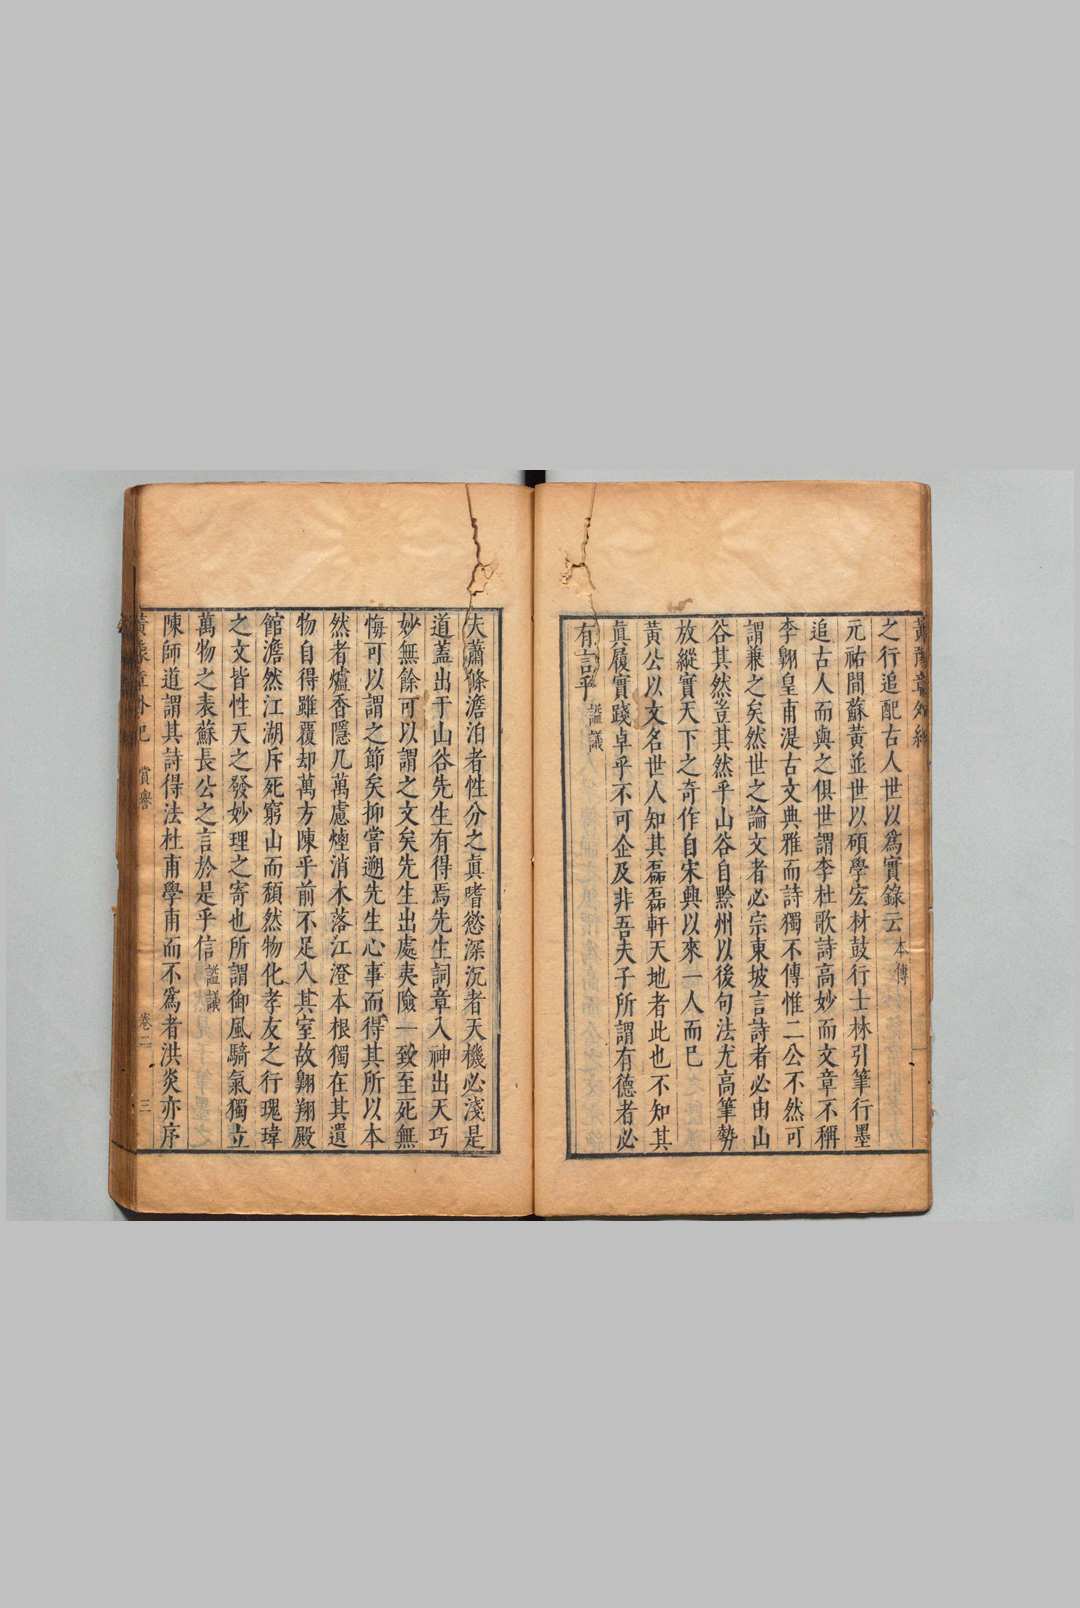 黃豫章外紀
之行追配古人世以爲實錄云本傳
元祐間蘇黃並世以碩學宏材鼓行士林引筆行墨
追古人而與之俱世謂李杜歌詩高妙而文章不稱
李翺皇甫湜古文典雅而詩獨不傳惟二公不然可
謂兼之矣然世之論文者必宗東坡言詩者必由山
谷其然豈其然乎山谷自黔州以後句法尤高筆勢
放縱實天下之奇作自宋興以來一人而已
黃公以文名世人知其磊磊軒天地者此也不知其
眞履實踐卓乎不可企及非吾夫子所謂有德者必
有言乎謚議
夫蕭條澹泊者性分之眞嗜慾深沉者天機必淺是
道蓋出于山谷先生有得焉先生詞章入神出天巧
妙無餘可以謂之文矣先生出處夷險一致至死無
悔可以謂之節矣抑嘗遡先生心事而得其所以本
然者爐香隱几萬慮煙消木落江澄本根獨在其遺
物自得雖覆却萬方陳乎前不足入其室故翺翔殿
館澹然江湖斥死窮山而頹然物化孝友之行瑰瑋
之文皆性天之發妙理之寄也所謂御風騎氣獨立
萬物之表蘇長公之言於是乎信謚議
陳師道謂其詩得法杜甫學甫而不爲者洪炎亦序
黃豫章外紀 賞譽 卷二 三